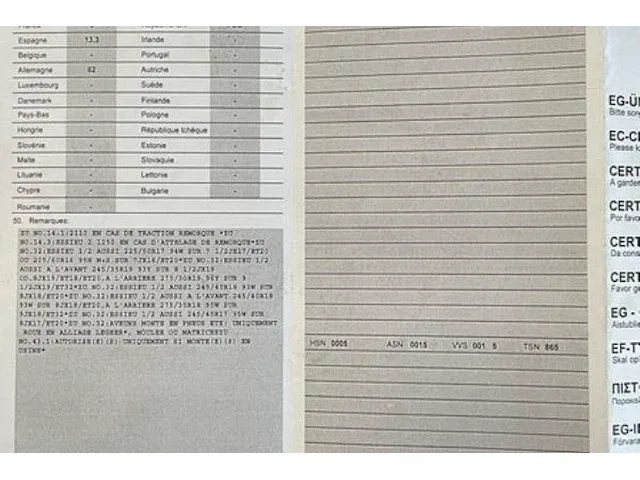 Espagne 13,3 Irlande -
Belgique - Portugal -
Allemagne 62 Autriche -
Luxembourg - Suède -
Danemark - Finlande -
Pays-Bas - Pologne -
Hongrie - République tchèque -
Slovénie - Estonie -
Malte - Slovaquie -
Lituanie - Lettonie -
Chypre - Bulgarie -
Roumanie -
50. Remarques:
ZU NO.14.1:2110 EN CAS DE TRACTION REMORQUE *ZU
NO.14.3:ESSIEU 2 1250 EN CAS D'ATTELAGE DE REMORQUE*ZU
NO.32:ESSIEU 1/2 AUSSI 225/60R17 94W SUR 7 1/2JX17/ET20
OU 205/60R16 95H M+S SUR 7JX16/ET20*ZU NO.32:ESSIEU 1/2
AUSSI A L'AVANT 245/35R19 93Y SUR 8 1/2JX19
1/2JX19/ET32*ZU NO.32:ESSIEU 1/2 AUSSI 245/40R18 93W SUR
8JX18/ET20*ZU NO.32:ESSIEU 1/2 AUSSI A L'AVANT 245/40R18
93W SUR 8JX18/ET20,A L'ARRIERE 275/35R18 95W SUR
9JX18/ET32*ZU NO.32:ESSIEU 1/2 AUSSI 245/45R17 95W SUR
8JX17/ET20*ZU NO.32:AVEUNS MONTS EN PNEUS ETE: UNIQUEMENT
ROUE EN ALLIAGE LEGERE, MOULEE OU MATRICEE*ZU
NO.43.1:AUTORISE(E)(S) UNIQUEMENT SI MONTE(E)(S) EN
USINE*
HSN 0005 ASN 0015 VVS 001 5 TSN 865
EG-Ü
Bitte sor
EC-C
Please k
CERT
A garde
CERT
Por favo
CERT
Da cons
CERT
Favor ge
EG -
Aistublie
EF-T
Skal op
ΠΙΣΤ
Παρακα
EG-I
Förvara